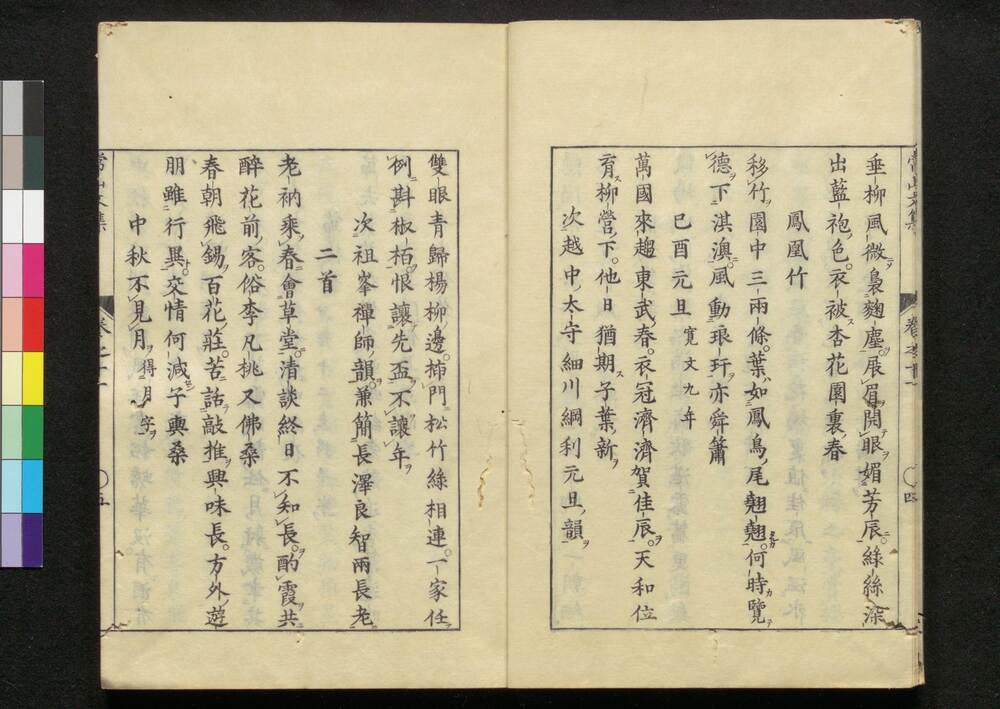 垂柳風微裊麴塵展眉開眼媚芳辰綠絲深
出藍袍色衣被杏花園裏春
鳳凰竹
移竹園中三兩條葉如鳳鳥尾翹翹何時覽
德下淇澳風動琅玕亦舜簫
己酉元旦 寛文九年
萬國來趨東武春衣冠濟濟賀佳辰天和位
育柳營下他日猶期子葉新
次越中太守細川綱利元旦韻
雙眼青歸楊柳邊柿門松竹絲相連一家任
例斟椒栢恨讓先盃不讓年
次祖峯禪師韻兼簡長澤良智兩長老
二首
老衲乘春會草堂清談終日不知長酌霞共
醉花前客俗李凡桃又佛桑
春朝飛錫百花莊苦話敲推興味長方外遊
朋雖行異交情何減子輿桑
中秋不見月 得月字
常山文集
卷之十一
四
五